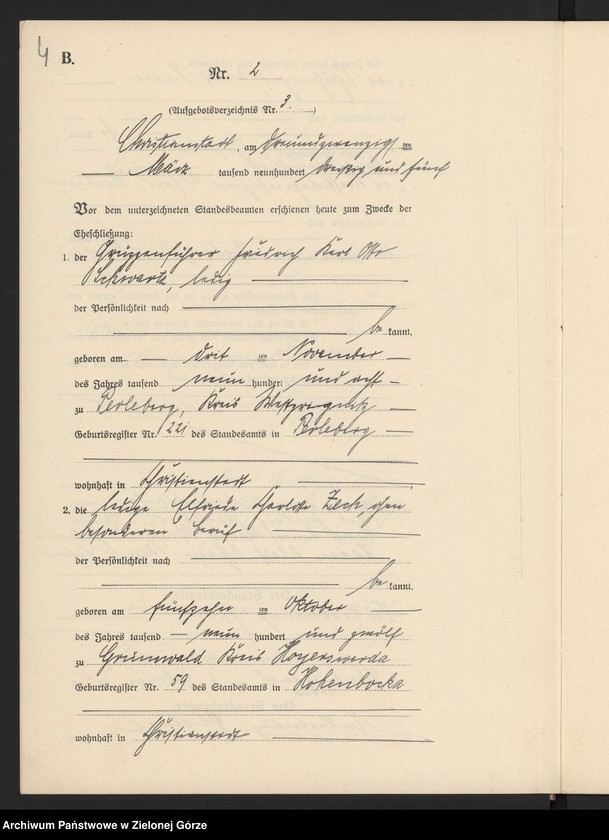 4 B.
Nr. 2
(Aufgebotsverzeichnis Nr. 3.)
Christianstadt, am dreiundzwanzigsten
März tausend neunhundert dreißig und fünf
Vor dem unterzeichneten Standesbeamten erschienen heute zum Zwecke der
Eheschließung:
1. der Gruppenführer Friedrich Karl Otto
ledig
der Persönlichkeit nach
bekannt,
geboren am dritten November
des Jahres tausend neun hundert und acht
zu Perleberg, Kreis Westprignitz
Geburtsregister Nr. 221 des Standesamts in Perleberg
wohnhaft in Christianstadt
2. die ledige Elfriede Charlotte Zech, ohne
besonderen Beruf
der Persönlichkeit nach
bekannt,
geboren am fünfzehnten Oktober
des Jahres tausend neun hundert und zwölf
zu Grünewald Kreis Hoyerswerda
Geburtsregister Nr. 59 des Standesamts in Hohenbocka
wohnhaft in Christianstadt
Archiwum Państwowe w Zielonej Górze